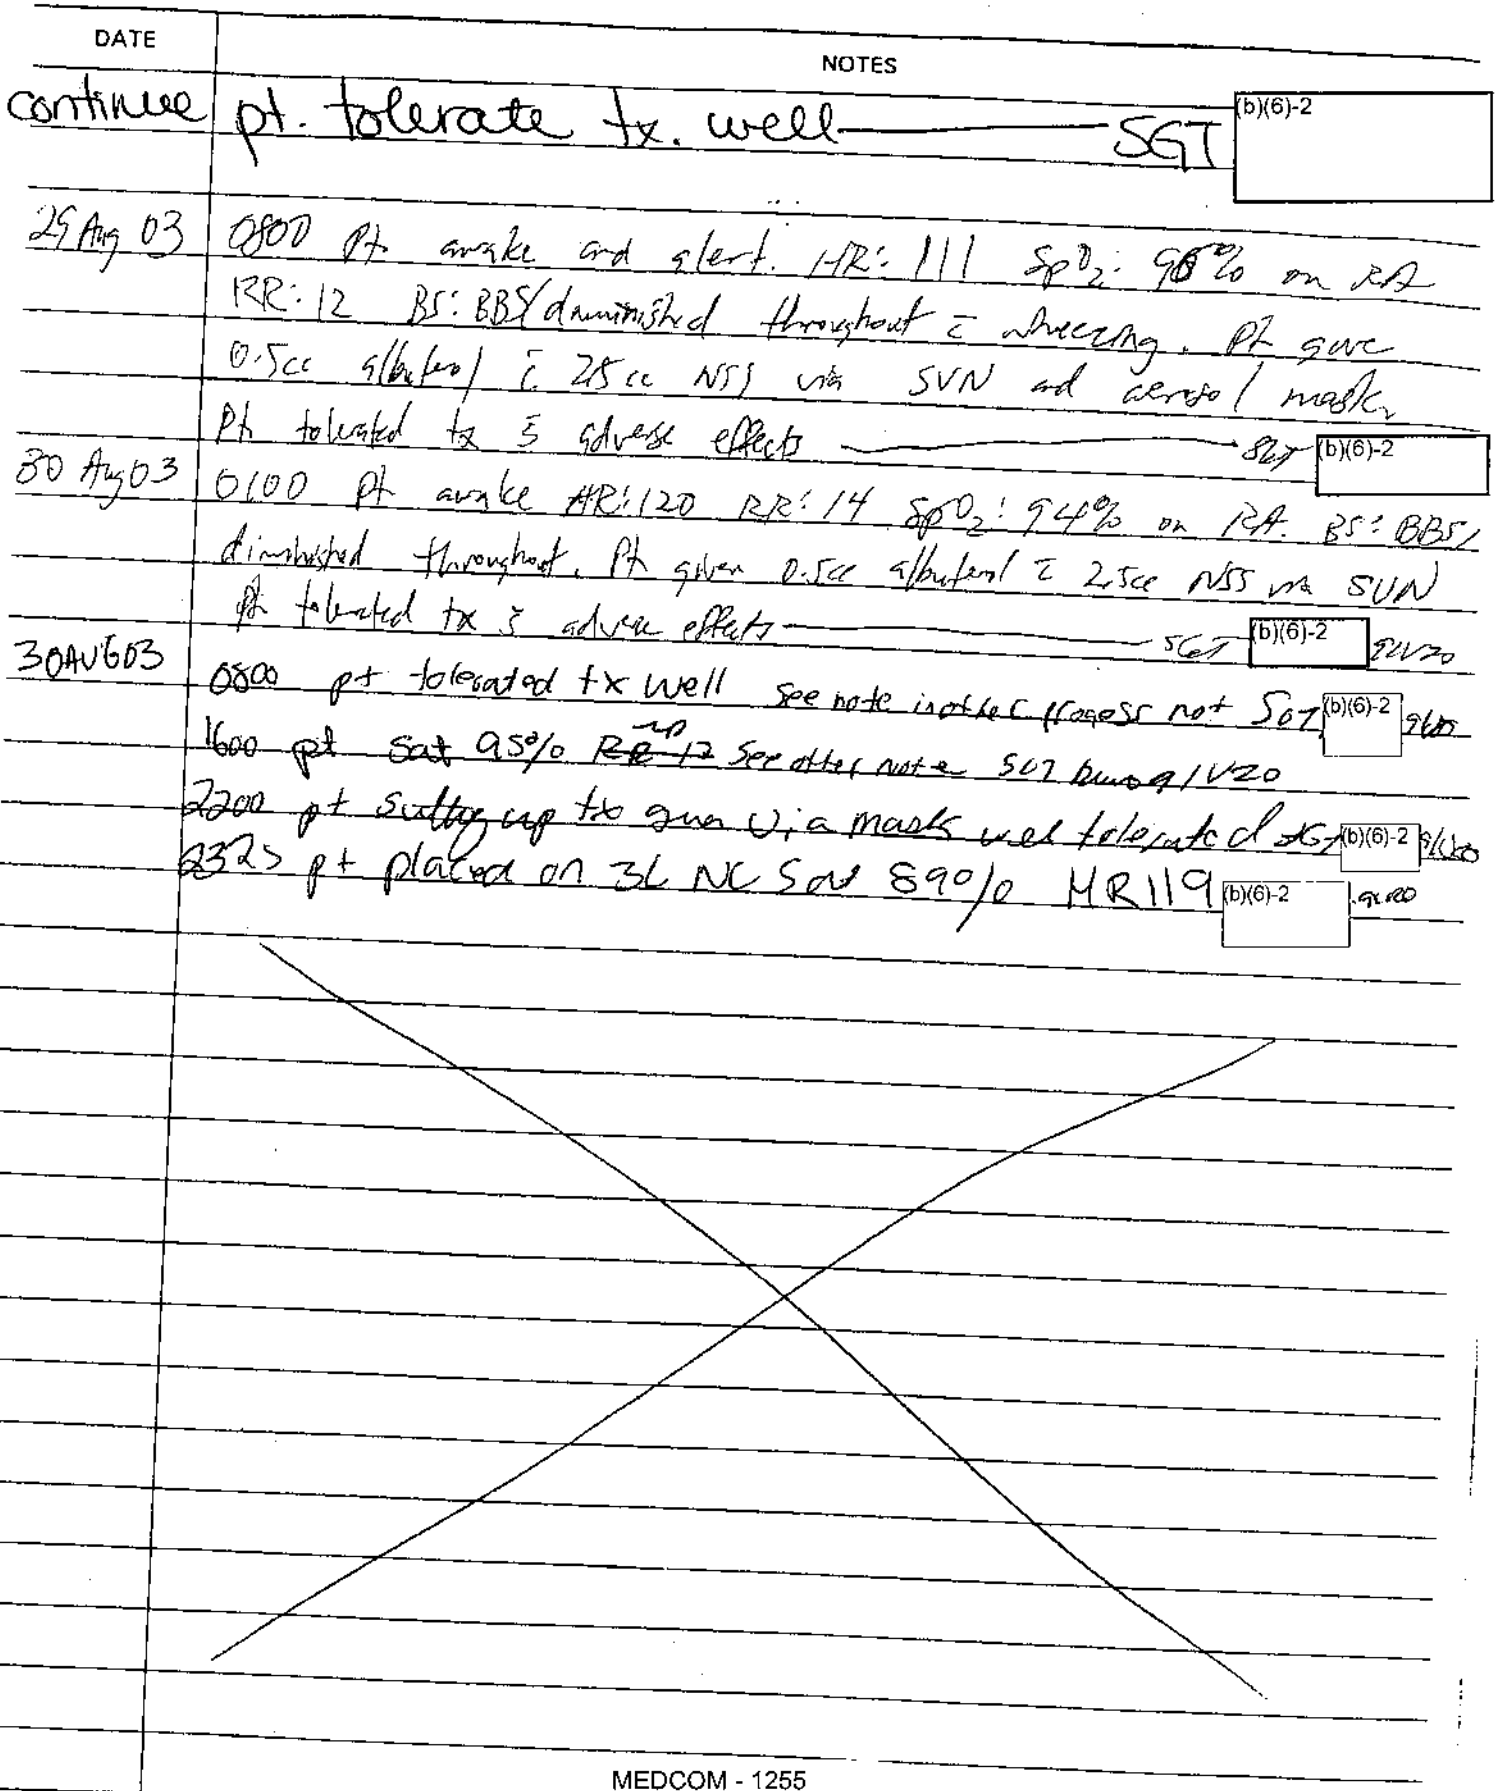 DATE NOTES
continue pt. tolerate tx. well SGT (b)(6)-2
29 Aug 03 0800 Pt awake and alert. HR: 111 SpO2: % on RA
RR: 12 BS: BBS/diminished throughout c̄ wheezing. Pt gave
0.5cc albuterol c̄ 2.5cc NSS via SVN and aerosol mask.
Pt tolerated tx s̄ adverse effects SGT (b)(6)-2
30 Aug 03 0100 Pt awake HR: 120 RR: 14 SpO2: 94% on RA. BS: BBS/
diminished throughout. Pt given 0.5cc albuterol c̄ 2.5cc NSS via SVN
pt tolerated tx s̄ adverse effects SGT (b)(6)-2 91V20
30AUG03 0800 pt tolerated tx well see note in other progess not SGT (b)(6)-2
1600 pt Sat 95% RR 12 See other note SGT 91V20
2200 pt up tx via mask well tolerated SGT (b)(6)-2
2325 pt placed on 3L NC Sat 89% HR119 (b)(6)-2
MEDCOM - 1255